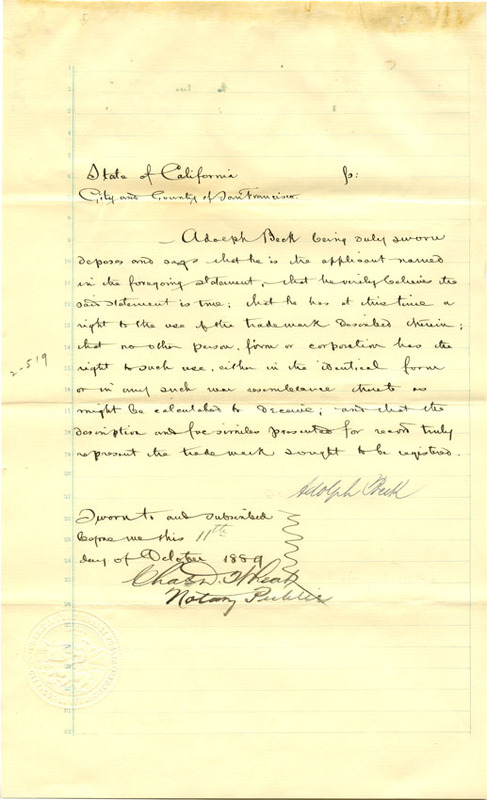 State of California ss:
City and County of San Francisco.
Adolph Beck being duly sworn
deposes and says that he is the applicant named
in the foregoing statement, that he verily believes the
said statement is true; that he has at this time a
right to the use of the trademark described therein;
that no other person, firm or corporation has the
right to such use, either in the identical form
or in any such near resemblance thereto as
might be calculated to deceive; and that the
description and facsimiles presented for record truly
represent the trade mark sought to be registered.
2-519
Adolph Beck
Sworn to and subscribed
before me this 11th
day of October 1889
Notary Public